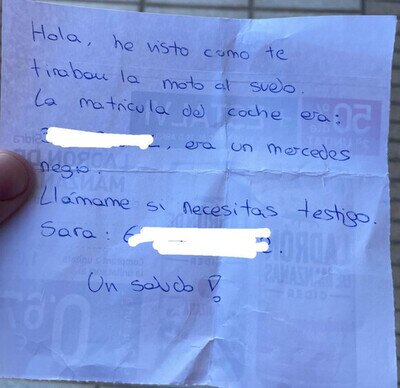 Hola, he visto como te
tirabau la moto al suelo.
La matrícula del coche era:
, era un mercedes
negro.
Llámame si necesitas testigo.
Sara:
Un saludo!